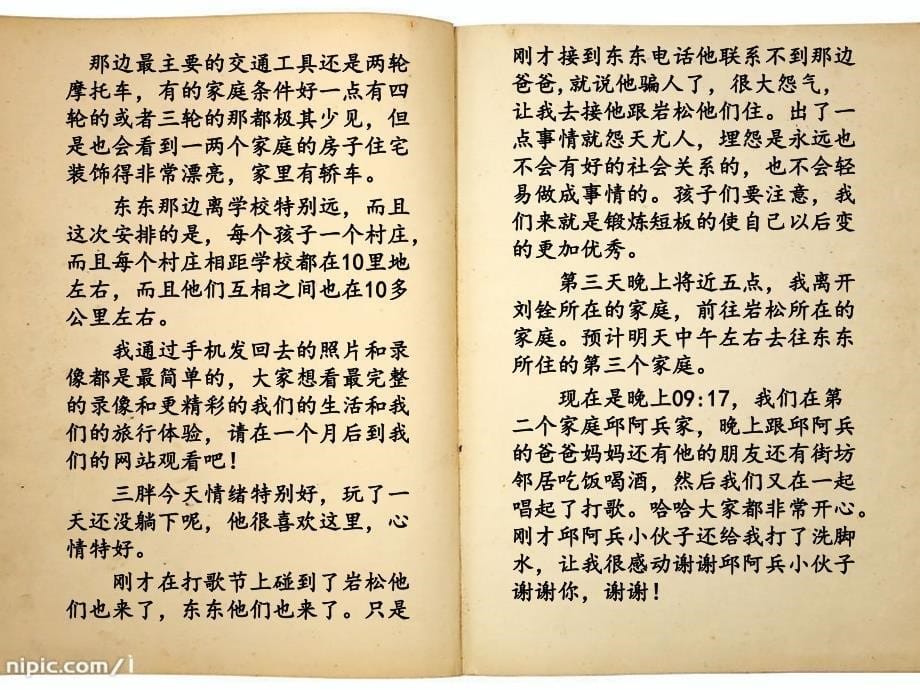 那边最主要的交通工具还是两轮
摩托车，有的家庭条件好一点有四
轮的或者三轮的那都极其少见，但
是也会看到一两个家庭的房子住宅
装饰得非常漂亮，家里有轿车。
东东那边离学校特别远，而且
这次安排的是，每个孩子一个村庄，
而且每个村庄相距学校都在10里地
左右，而且他们互相之间也在10多
公里左右。
我通过手机发回去的照片和录
像都是最简单的，大家想看最完整
的录像和更精彩的我们的生活和我
们的旅行体验，请在一个月后到我
们的网站观看吧！
三胖今天情绪特别好，玩了一
天还没躺下呢，他很喜欢这里，心
情特好。
刚才在打歌节上碰到了岩松他
们也来了，东东他们也来了。只是
刚才接到东东电话他联系不到那边
爸爸,就说他骗人了，很大怨气，
让我去接他跟岩松他们住。出了一
点事情就怨天尤人，埋怨是永远也
不会有好的社会关系的，也不会轻
易做成事情的。孩子们要注意，我
们来就是锻炼短板的使自己以后变
的更加优秀。
第三天晚上将近五点，我离开
刘铨所在的家庭，前往岩松所在的
家庭。预计明天中午左右去往东东
所住的第三个家庭。
现在是晚上09:17，我们在第
二个家庭邱阿兵家，晚上跟邱阿兵
的爸爸妈妈还有他的朋友还有街坊
邻居吃饭喝酒，然后我们又在一起
唱起了打歌。哈哈大家都非常开心。
刚才邱阿兵小伙子还给我打了洗脚
水，让我很感动谢谢邱阿兵小伙子
谢谢你，谢谢！
nipic.com/i